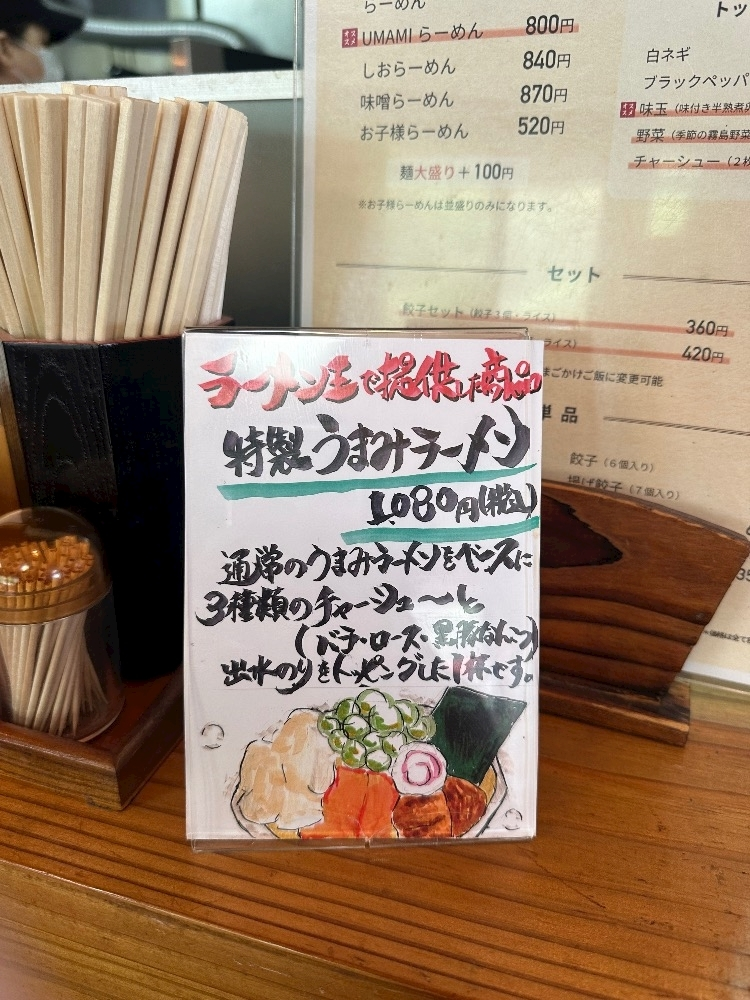 らーめん
オススメ UMAMIらーめん 800円
しおらーめん 840円
味噌らーめん 870円
お子様らーめん 520円
麺大盛り+100円
※お子様らーめんは並盛りのみになります。
トッ
白ネギ
ブラックペッパ
オススメ 味玉(味付き半熟煮
野菜(季節の霧島野菜
チャーシュー(2枚
セット
餃子セット(餃子3個・ライス) 360円
ライス) 420円
まごかけご飯に変更可能
単品
餃子(6個入り)
揚げ餃子(7個入り)
ラーメン王で提供した商品
特製うまみラーメン
1,080円(税込)
通常のうまみラーメンをベースに
3種類のチャーシュ〜と
(バラ・ロース・黒豚なんこつ)
出水のりをトッピングした1杯です。